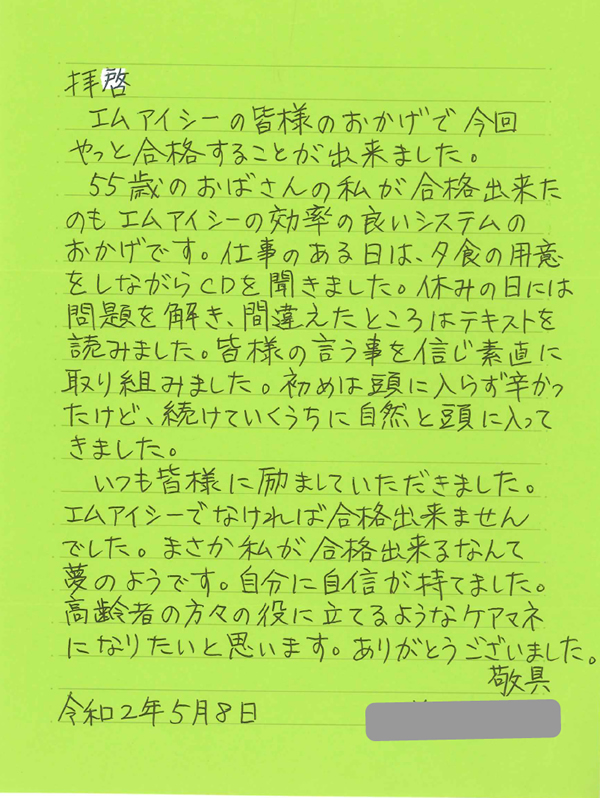 拝啓
エムアイシーの皆様のおかげで今回
やっと合格することが出来ました。
55歳のおばさんの私が合格出来た
のもエムアイシーの効率の良いシステムの
おかげです。仕事のある日は、夕食の用意
をしながらCDを聞きました。休みの日には
問題を解き、間違えたところはテキストを
読みました。皆様の言う事を信じ素直に
取り組みました。初めは頭に入らず辛かっ
たけど、続けていくうちに自然と頭に入って
きました。
いつも皆様に励ましていただきました。
エムアイシーでなければ合格出来ません
でした。まさか私が合格出来るなんて
夢のようです。自分に自信が持てました。
高齢者の方々の役に立てるようなケアマネ
になりたいと思います。ありがとうございました。
敬具
令和2年5月8日